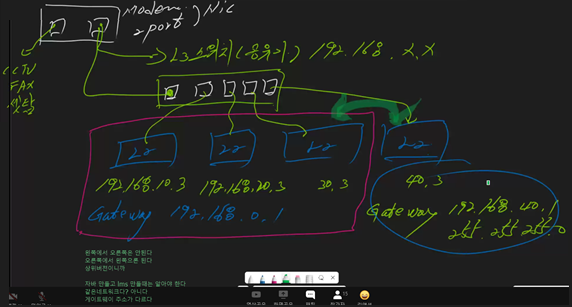 modem
2port ) Nic
CCTV
FAX
L3 스위치 (공유기) 192.168.x.x
L2 L2 L2 L2
192.168.10.3 192.168.20.3 30.3 40.3
Gateway 192.168.0.1
Gateway 192.168.40.1
255.255.255.0
왼쪽에서 오른쪽은 안된다
오른쪽에서 왼쪽으론 된다
상위버전이니까
자바 만들고 lms 만들때는 알아야 한다
같은네트워크다? 아니다
게이트웨이 주소가 다르다